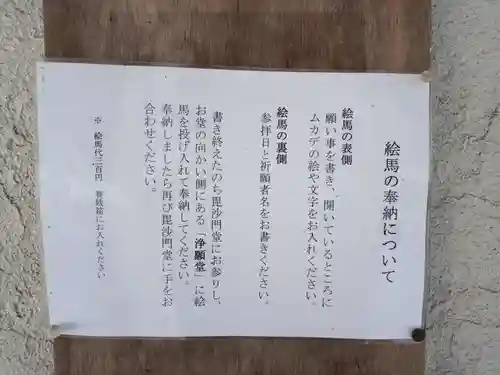 絵馬の奉納について
絵馬の表側
願い事を書き、開いているところに
ムカデの絵や文字をお入れください。
絵馬の裏側
参拝日と祈願者名をお書きください。
書き終えたのち毘沙門堂にお参りし、
お堂の向かい側にある「浄願堂」に絵
馬を投げ入れて奉納してください。
奉納しましたら再び毘沙門堂に手をお
合わせください。
※ 絵馬代二百円 賽銭箱にお入れください